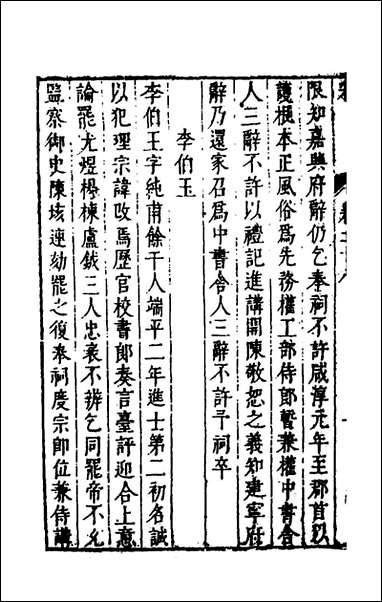 限知嘉興府辭仍乞奉祠不許咸淳元年至郡首以
護根本正風俗爲先務權工部侍郎暫兼權中書舍
人三辭不許以禮記進講開陳敬恕之義知建寧府
辭乃還家召爲中書舍人三辭不許予祠卒
李伯玉
李伯玉字純甫餘干人端平二年進士第二初名誠
以犯理宗諱改焉歷官校書郎奏言臺評迎合上意
論罷尤煜楊棟盧鉞三人忠衺不辨乞同罷帝不允
監察御史陳垓連劾罷之復奉祠度宗卽位兼侍講